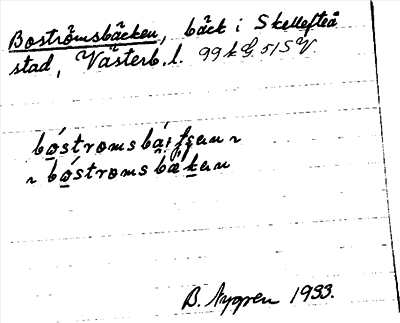 Boströmsbäcken, bäck i Skellefteå
stad, Västerb. l. 99 k G. 51 S V.
bóstromsbäi
~ bóstromsbækan
B. Nygren 1933.